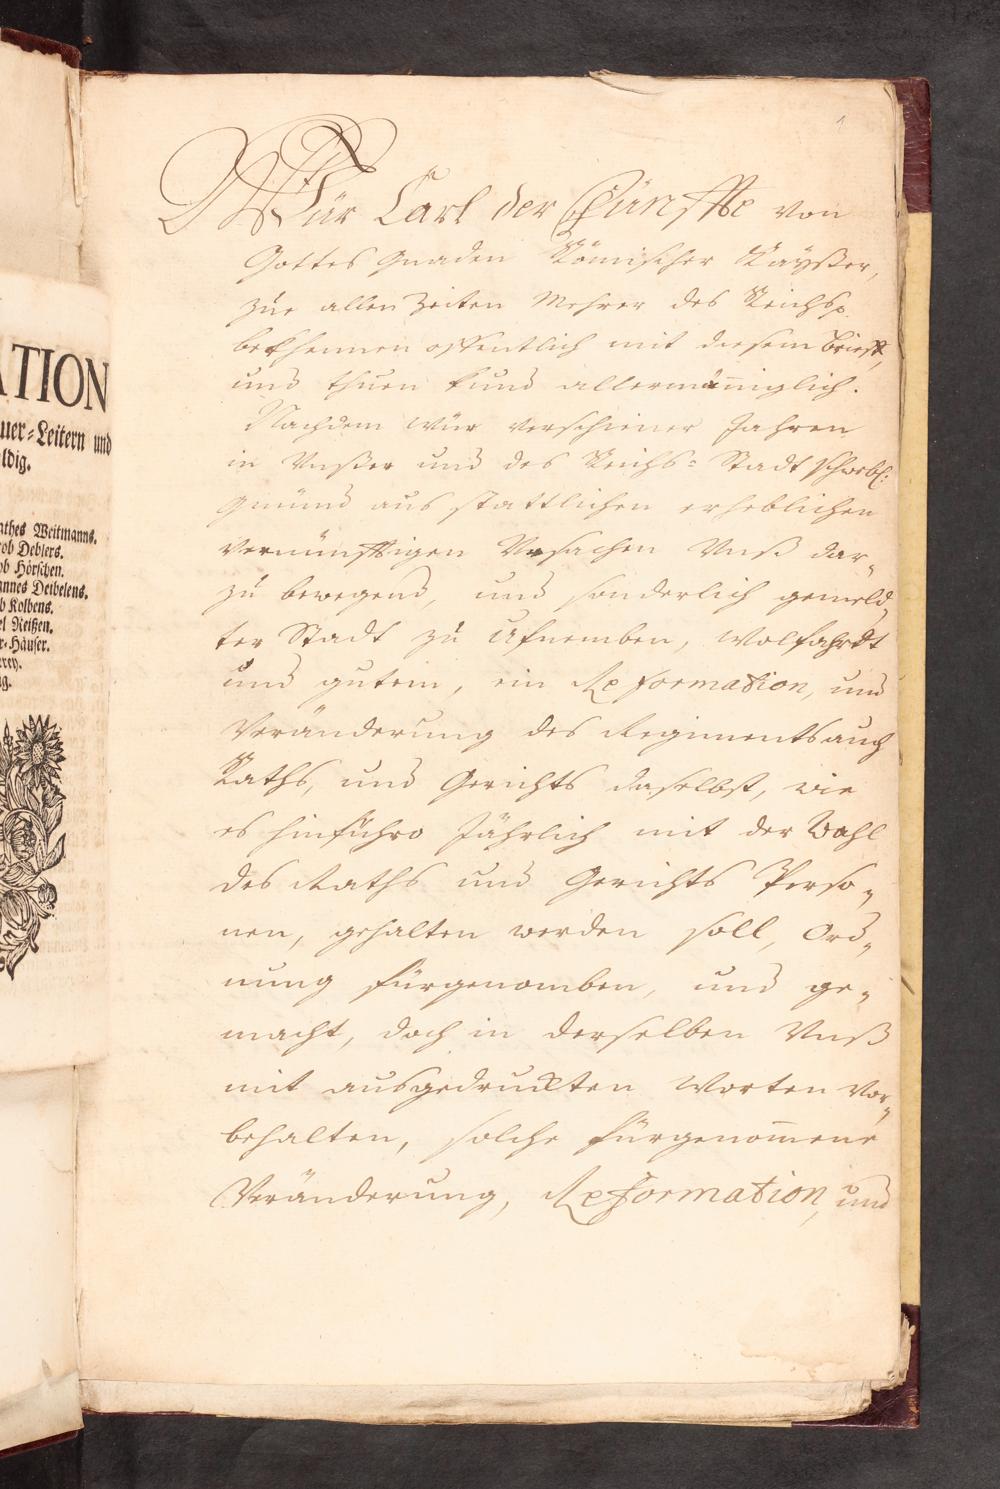 ATION
uer=Leitern und
ldig.
athes Weitmanns.
ob Deblers.
ob Hörschen.
annes Deibelens.
b Kolbens.
el Reißen.
r=Häuser.
rey.
g.
1
Wür Carl der Fünffte von
Gottes Gnaden Römischer Kayßer,
zue allen Zeiten Mehrer des Reichs p.
bekhennen offentlich mit diesem brieff,
und thuen kund allermänniglich.
Nachdem Wür verschiener Jahren
in Vnßer und des Reichs= Stadt schwebl:
Gmünd aus stattlichen erheblichen
vernünfftigen Vrsachen Vnß dar„
zu bewegend, und sonderlich gemeld„
ter Stadt zu Ufnemben, Wolfahrdt
und gutem, ein Reformation, und
Veränderung des Regiments auch
Raths, und Gerichts daselbst, wie
es hinführo Jährlich mit der Wahl
des Raths und Gerichts Perso„
nen, gehalten werden soll, Ord„
nung fürgenomben, und ge„
macht, doch in derselben Vnß
mit ausgedruckten Worten vor„
behalten, solche fürgenom̄ene
Veränderung, Reformation, und